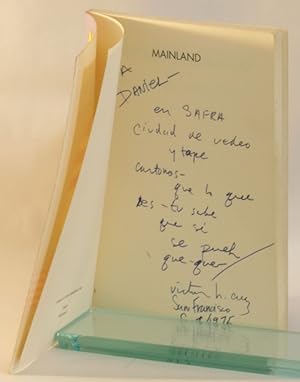 MAINLAND
A
DANIEL—
en SAFRA
Ciudad de video
y tape
cantonos—
que lo que
des – tu sabe
que si
se puede
que-quer
victor h. cruz
San Francisco
1975